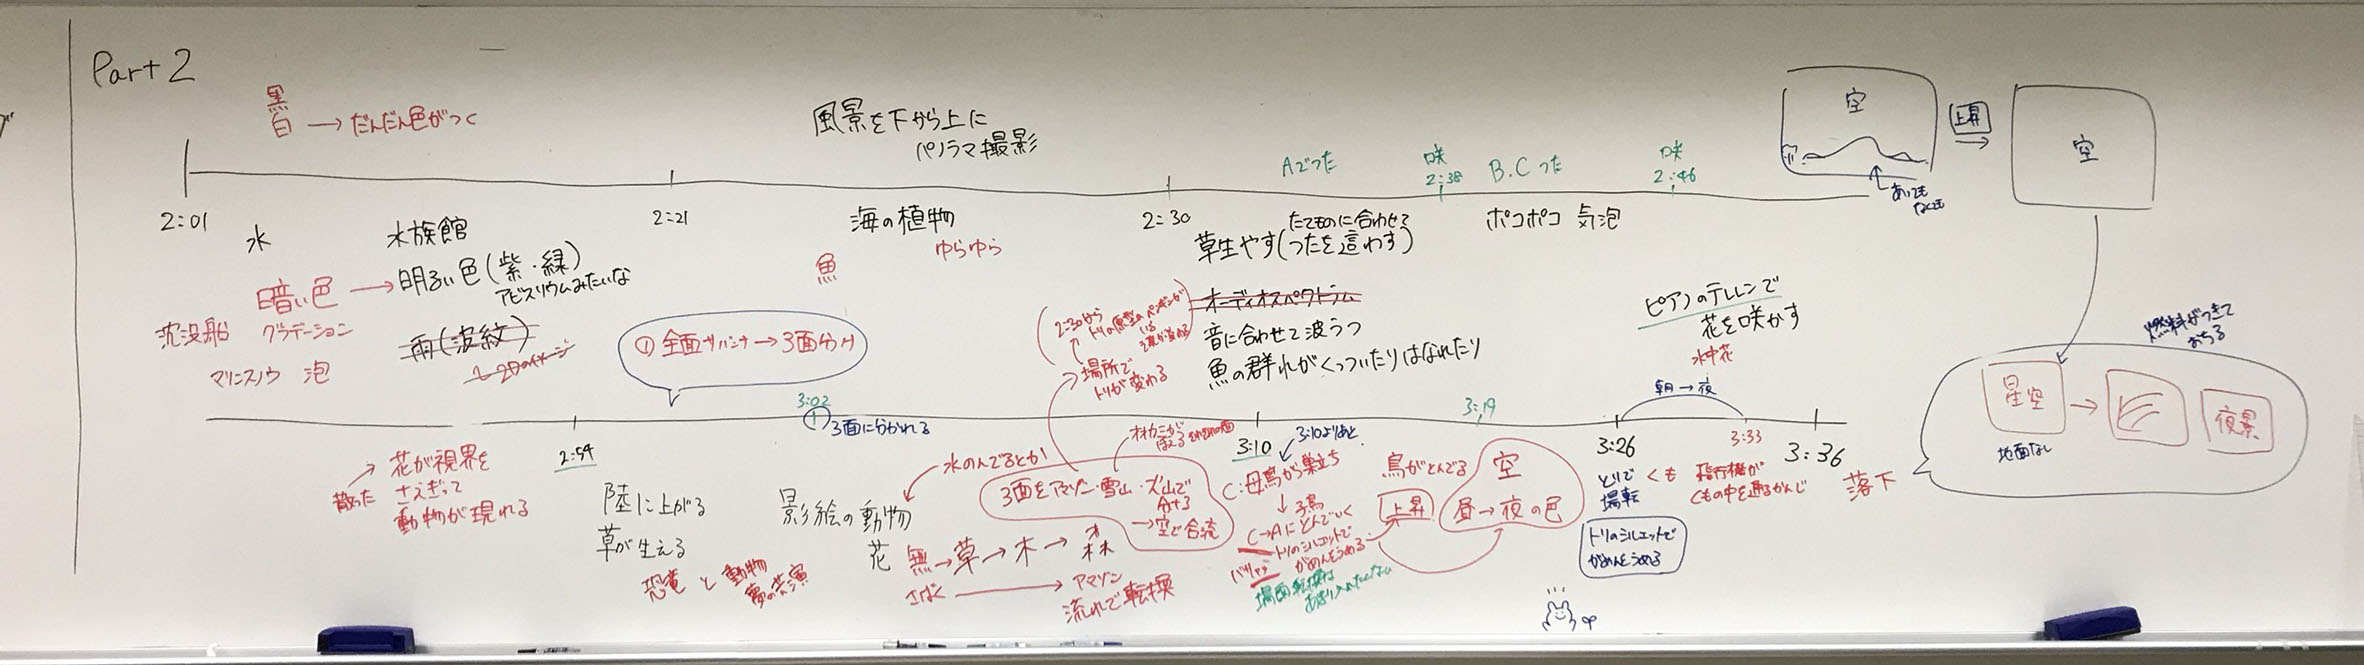 Part 2
黒
白 → だんだん色がつく
風景を下から上に
パノラマ撮影
Aでつた
咲
2:38
B.Cつた
咲
2:46
空
上昇
→
空
あっても
なくても
2:01
2:21
2:30
水
水族館
海の植物
ゆらゆら
魚
たてものに合わせて
草生やす(つたを這わす)
ポコポコ 気泡
暗い色 → 明るい色(紫・緑)
アビスリウムみたいな
沈没船 グラデーション
マリンスノウ 泡
雨(波紋)
① 全面サバンナ→3面分け
2:30から
トリの原型のペンギンが
いる
場所で
トリが変わる
オーディオスペクトラム
音に合わせて波うつ
魚の群れがくっついたりはなれたり
ピアノのテレレンで
花を咲かす
水中花
燃料がつきて
おちる
星空
→
夜景
地面なし
2:54
3:02
①
3面に分かれる
3:10
3:19
3:26
朝→夜
3:33
3:36
→ 花が視界を
散った さえぎって
動物が現れる
陸に上がる
草が生える
恐竜 と 動物
夢の共演
影絵の動物
花
水のんでるとか
オオカミが
ほえる
3面をアマゾン・雪山・ズ山で
分ける
→空で合流
無→草→木→森
さばく → アマゾン
流れで転換
3:10よりあと
C:母鳥が巣立ち
↓子鳥
C→Aにとんでいく
トリのシルエットで
がめんをうめる
バサッ
場面転換は
あまり入れたくない
鳥がとんでる
上昇
空
昼→夜の色
とりで
場転
くも
飛行機が
くもの中を通るかんじ
落下
トリのシルエットで
がめんをうめる